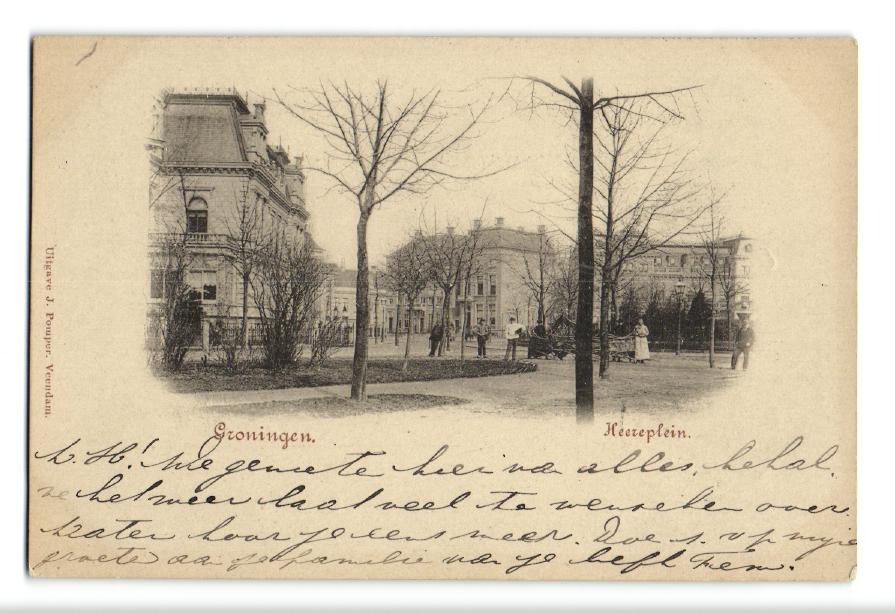 Uitgave J. Pomper. Veendam.
Groningen.
Heereplein.
L. H! We genieten hier van alles, behal.
ve het weer laat veel te wenschen over.
Later hoor je eens meer. Doe s. v. p. mijne
groete aan je familie van je